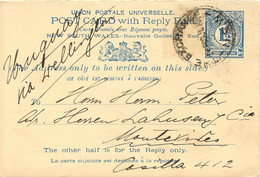 UNION POSTALE UNIVERSELLE.
POST CARD with Reply Paid
(Carte postale avec Réponse payée)
NEW SOUTH WALES—Nouvelle Galles du Sud
The address only to be written on this side.
(CE CÔTÉ EST RÉSERVÉ À L'ADRESSE)
Uruguay
via Wellington
To Herrn Herm. Peter
Herren Lahusen y Cia
Montevideo
Casilla 412
The other half is for the Reply only.
La carte ci-jointe est destinée à la réponse.